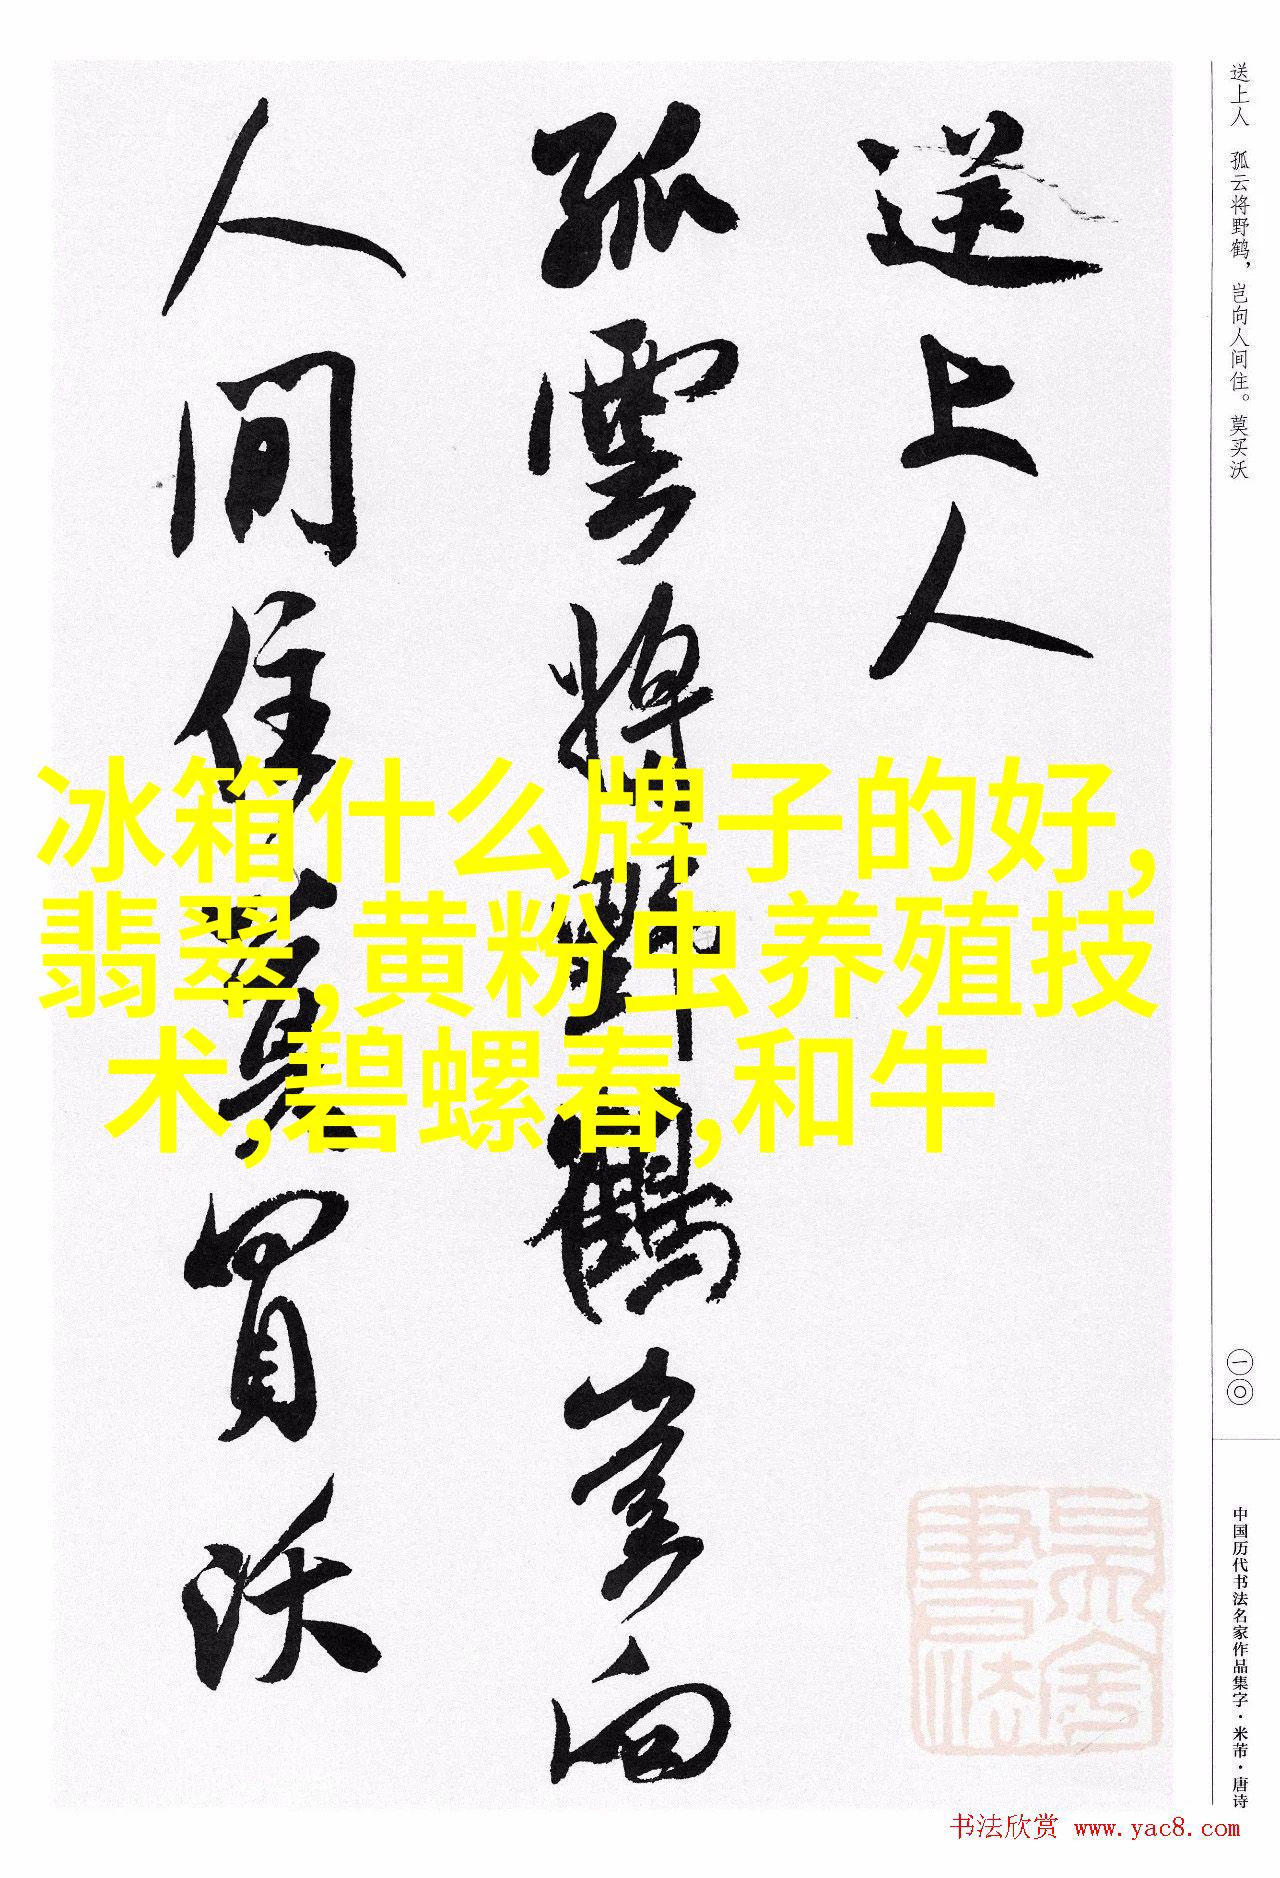 送上人
孤雲將野鶴豈向
人间住莫買沃
送上人 孤云将野鹤，岂向人间住。莫买沃
冰箱什么牌子的好,
翡翠,黄粉虫养殖技
术,碧螺春,和牛
一〇
中国历代书法名家作品集字·米芾·唐诗
书法欣赏 www.yac8.com